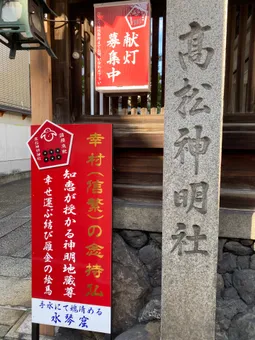 献灯
募集中
高松神明社
幸村(信繁)の念持仏
知恵が授かる神明地蔵尊
幸せ運ぶ結び雁金の絵馬
手水にて魂清める
水琴窟